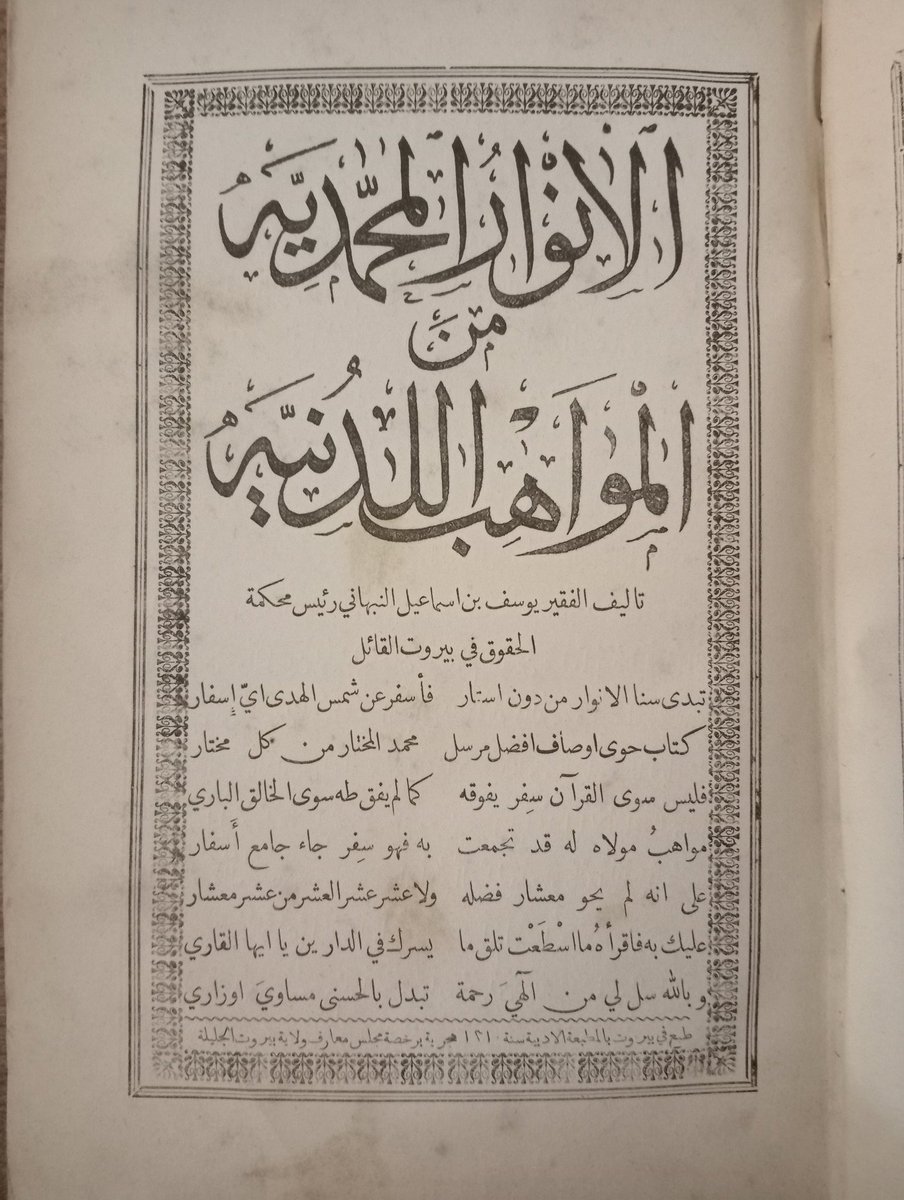 الانوار المحمدية
من
المواهب اللدنية
تاليف الفقير يوسف بن اسماعيل النبهاني رئيس محكمة
الحقوق في بيروت القائل
تبدى سنا الانوار من دون استار فأسفر عن شمس الهدى ايّ إسفار
كتاب حوى اوصاف افضل مرسل محمد المختار من كل مختار
فليس سوى القرآن سِفر يفوقه كما لم يفق طه سوى الخالق الباري
مواهبُ مولاه له قد تجمعت به فهو سِفر جاء جامع أَسفار
على انه لم يحو معشار فضله ولا عشر عشر العشر من عشر معشار
عليك به فاقرأهُ ما اسْطَعْت تلق ما يسرك في الدارين يا ايها القاري
وبالله سل لي من الٓهيَ رحمة تبدل بالحسنى مساويَ اوزاري
طبع في بيروت بالمطبعة الادبية سنة ١٣١٠ هجرية برخصة مجلس معارف ولاية بيروت الجليلة